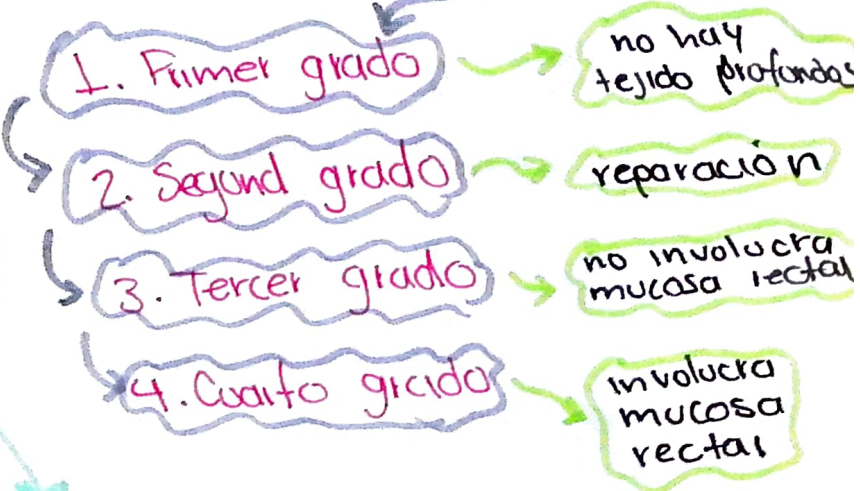 1. Primer grado
no hay
tejido profundos
2. Segund grado
reparación
3. Tercer grado
no involucra
mucosa rectal
4. Cuarto grado
involucra
mucosa
rectal